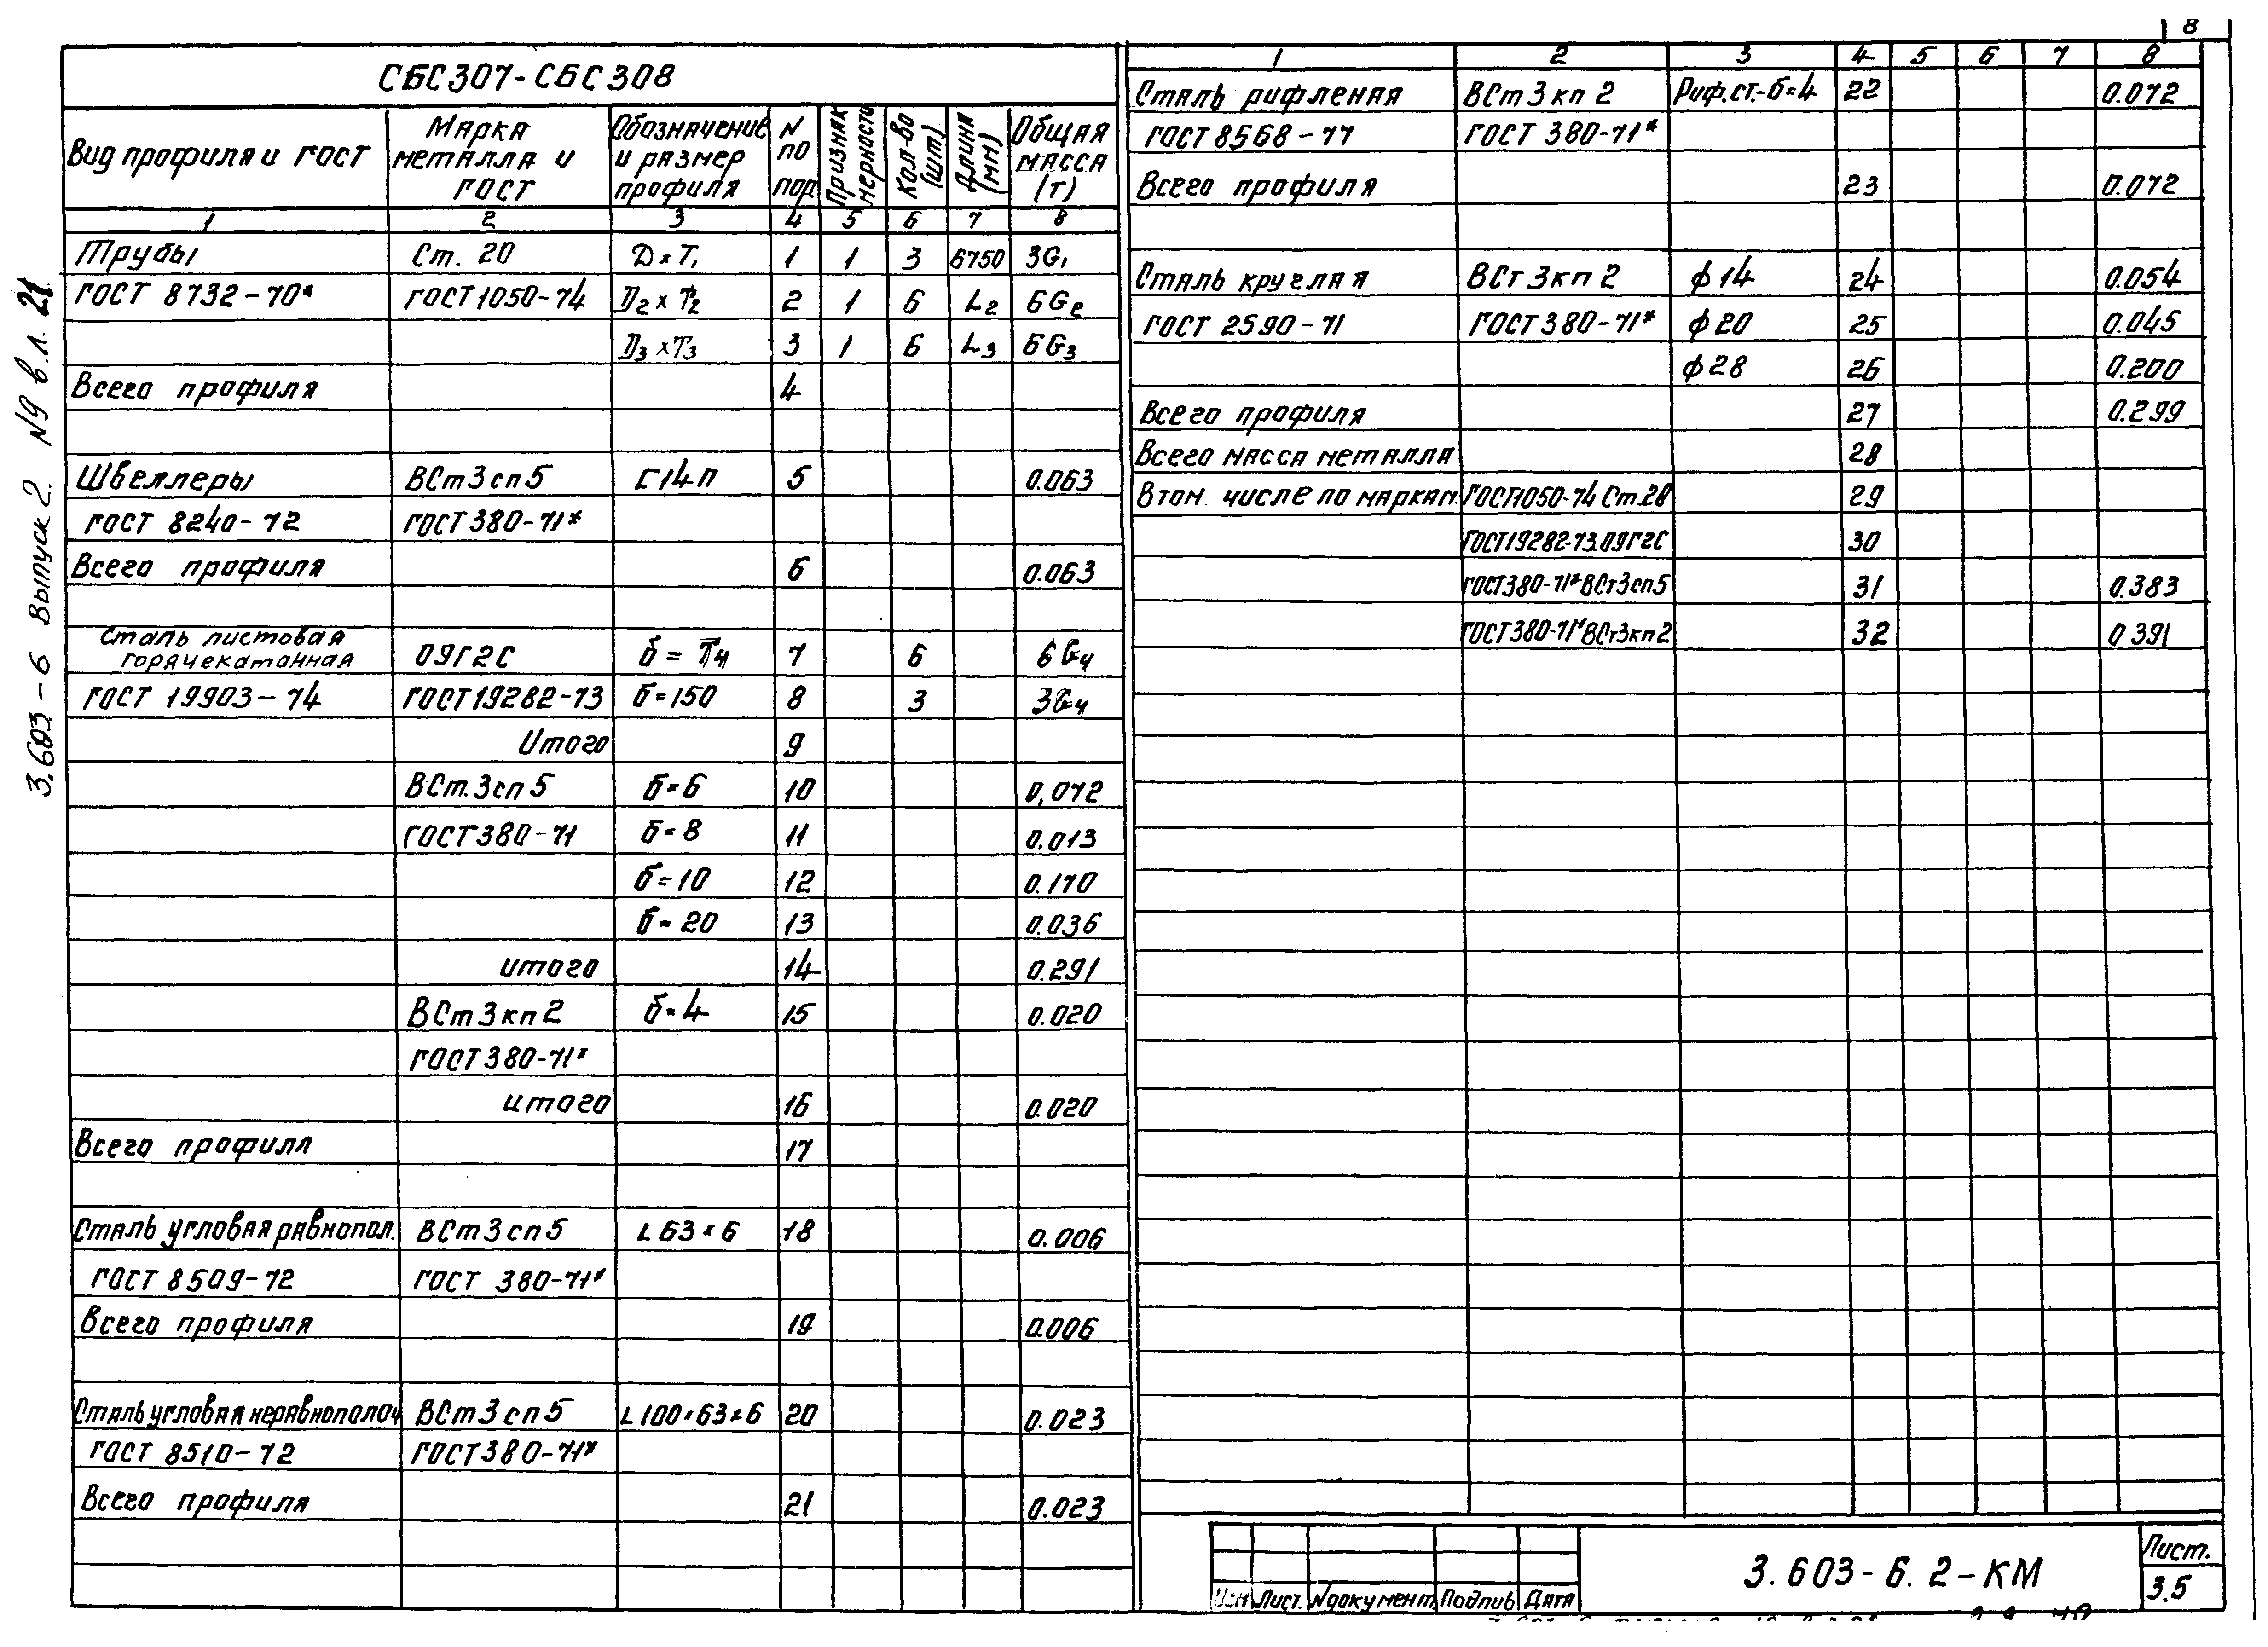 8
3.603-6 Выпуск 2. N9 в.л. 21
СБС307-СБС308
Вид профиля и ГОСТ
Марка металла и ГОСТ
Обозначение и размер профиля
N по пор
Признак мерности
Кол-во (шт)
Длина (мм)
Общая масса (т)
1 2 3 4 5 6 7 8
Трубы Ст. 20 D×T₁ 1 1 3 6750 3G₁
ГОСТ 8732-70* ГОСТ1050-74 D₂×T₂ 2 1 6 L₂ 6G₂
D₃×T₃ 3 1 6 L₃ 6G₃
Всего профиля 4
Швеллеры ВСт3сп5 [14П 5 0.063
ГОСТ 8240-72 ГОСТ380-71*
Всего профиля 6 0.063
Сталь листовая
горячекатанная 09Г2С δ=T₄ 7 6 6G₄
ГОСТ 19903-74 ГОСТ19282-73 δ=150 8 3 3G₄
Итого 9
ВСт.3сп5 δ=6 10 0,072
ГОСТ380-71 δ=8 11 0.013
δ=10 12 0.170
δ=20 13 0.036
итого 14 0.291
ВСт3кп2 δ=4 15 0.020
ГОСТ380-71*
итого 16 0.020
Всего профиля 17
Сталь угловая равнопол. ВСт3сп5 L63×6 18 0.006
ГОСТ 8509-72 ГОСТ 380-71*
Всего профиля 19 0.006
Сталь угловая неравнополоч ВСт3сп5 L100×63×6 20 0.023
ГОСТ 8510-72 ГОСТ380-71*
Всего профиля 21 0.023
1 2 3 4 5 6 7 8
Сталь рифленая ВСт3кп2 Риф.ст.-δ=4 22 0.072
ГОСТ8568-77 ГОСТ 380-71*
Всего профиля 23 0.072
Сталь круглая ВСт3кп2 ф14 24 0.054
ГОСТ 2590-71 ГОСТ380-71* ф20 25 0.045
ф28 26 0.200
Всего профиля 27 0.299
Всего масса металла 28
В том числе по маркам. ГОСТ1050-74 Ст.20 29
ГОСТ19282-73.09Г2С 30
ГОСТ380-71*ВСт3сп5 31 0.383
ГОСТ380-71*ВСт3кп2 32 0.391
Изм Лист. Nдокумент. Подпис Дата
3.603-6.2-КМ
Лист.
3.5